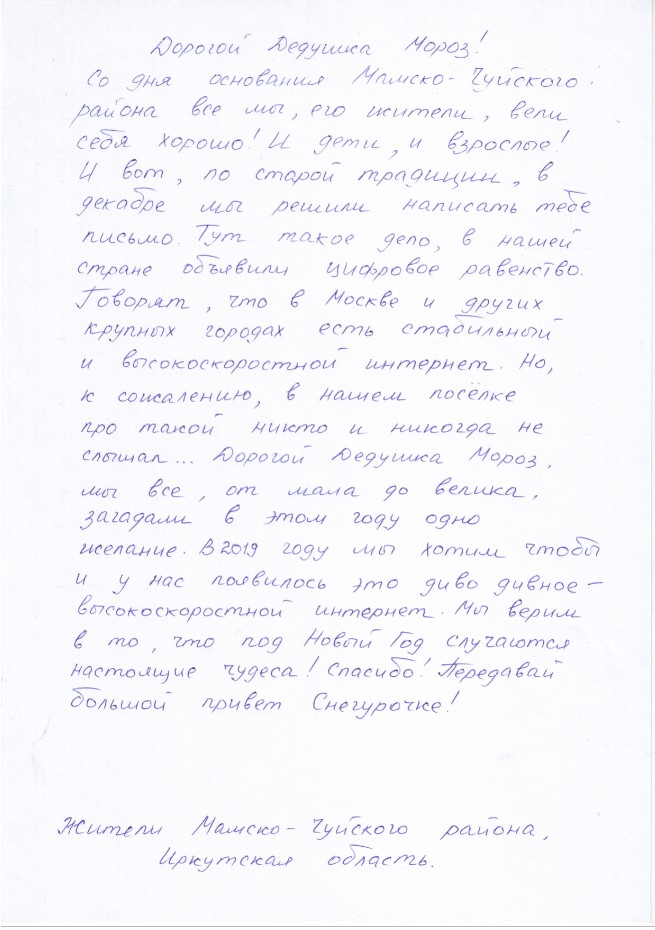 Дорогой Дедушка Мороз!
Со дня основания Мамско-Чуйского
района все мы, его жители, вели
себя хорошо! И дети, и взрослые!
И вот, по старой традиции, в
декабре мы решили написать тебе
письмо. Тут такое дело, в нашей
стране объявили цифровое равенство.
Говорят, что в Москве и других
крупных городах есть стабильный
и высокоскоростной интернет. Но,
к сожалению, в нашем посёлке
про такой никто и никогда не
слышал... Дорогой Дедушка Мороз,
мы все, от мала до велика,
загадали в этом году одно
желание. В 2019 году мы хотим чтобы
и у нас появилось это диво дивное –
высокоскоростной интернет. Мы верим
в то, что под Новый Год случаются
настоящие чудеса! Спасибо! Передавай
большой привет Снегурочке!
Жители Мамско-Чуйского района,
Иркутская область.